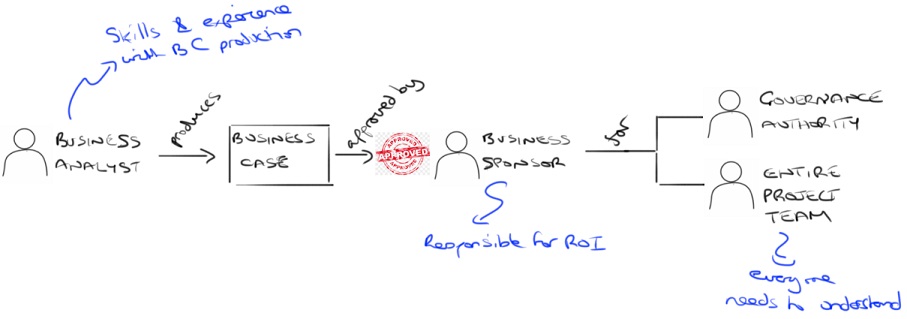 Skills & experience
with BC production
BUSINESS
ANALYST
produces
BUSINESS
CASE
approved by
APPROVED
APPROVED
APPROVED
BUSINESS
SPONSOR
Responsible for ROI
for
GOVERNANCE
AUTHORITY
ENTIRE
PROJECT
TEAM
everyone
needs to understand